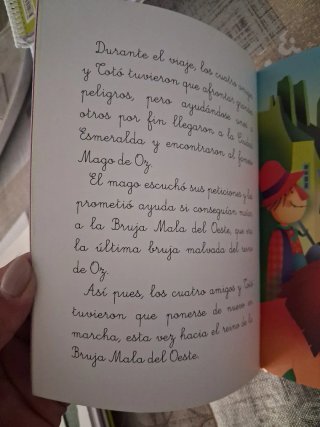 Durante el viaje, los cuatro amigos
y Totó tuvieron que afrontar
peligros, pero ayudándose unos a
otros por fin llegaron a la Ciudad
Esmeralda y encontraron al famoso
Mago de Oz.
El mago escuchó sus peticiones y les
prometió ayuda si conseguían matar
a la Bruja Mala del Oeste, que era
la última bruja malvada del reino
de Oz.
Así pues, los cuatro amigos y Totó
tuvieron que ponerse de nuevo en
marcha, esta vez hacia el reino de la
Bruja Mala del Oeste.